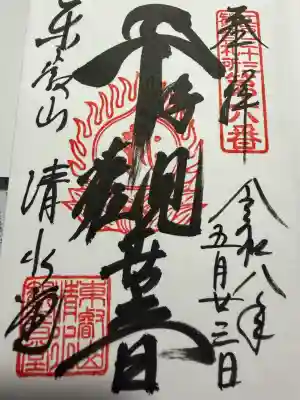 奉拝
令和八年
五月廿三日
千手観世音
東叡山
清水堂
東叡山
清水
観音堂
第六番